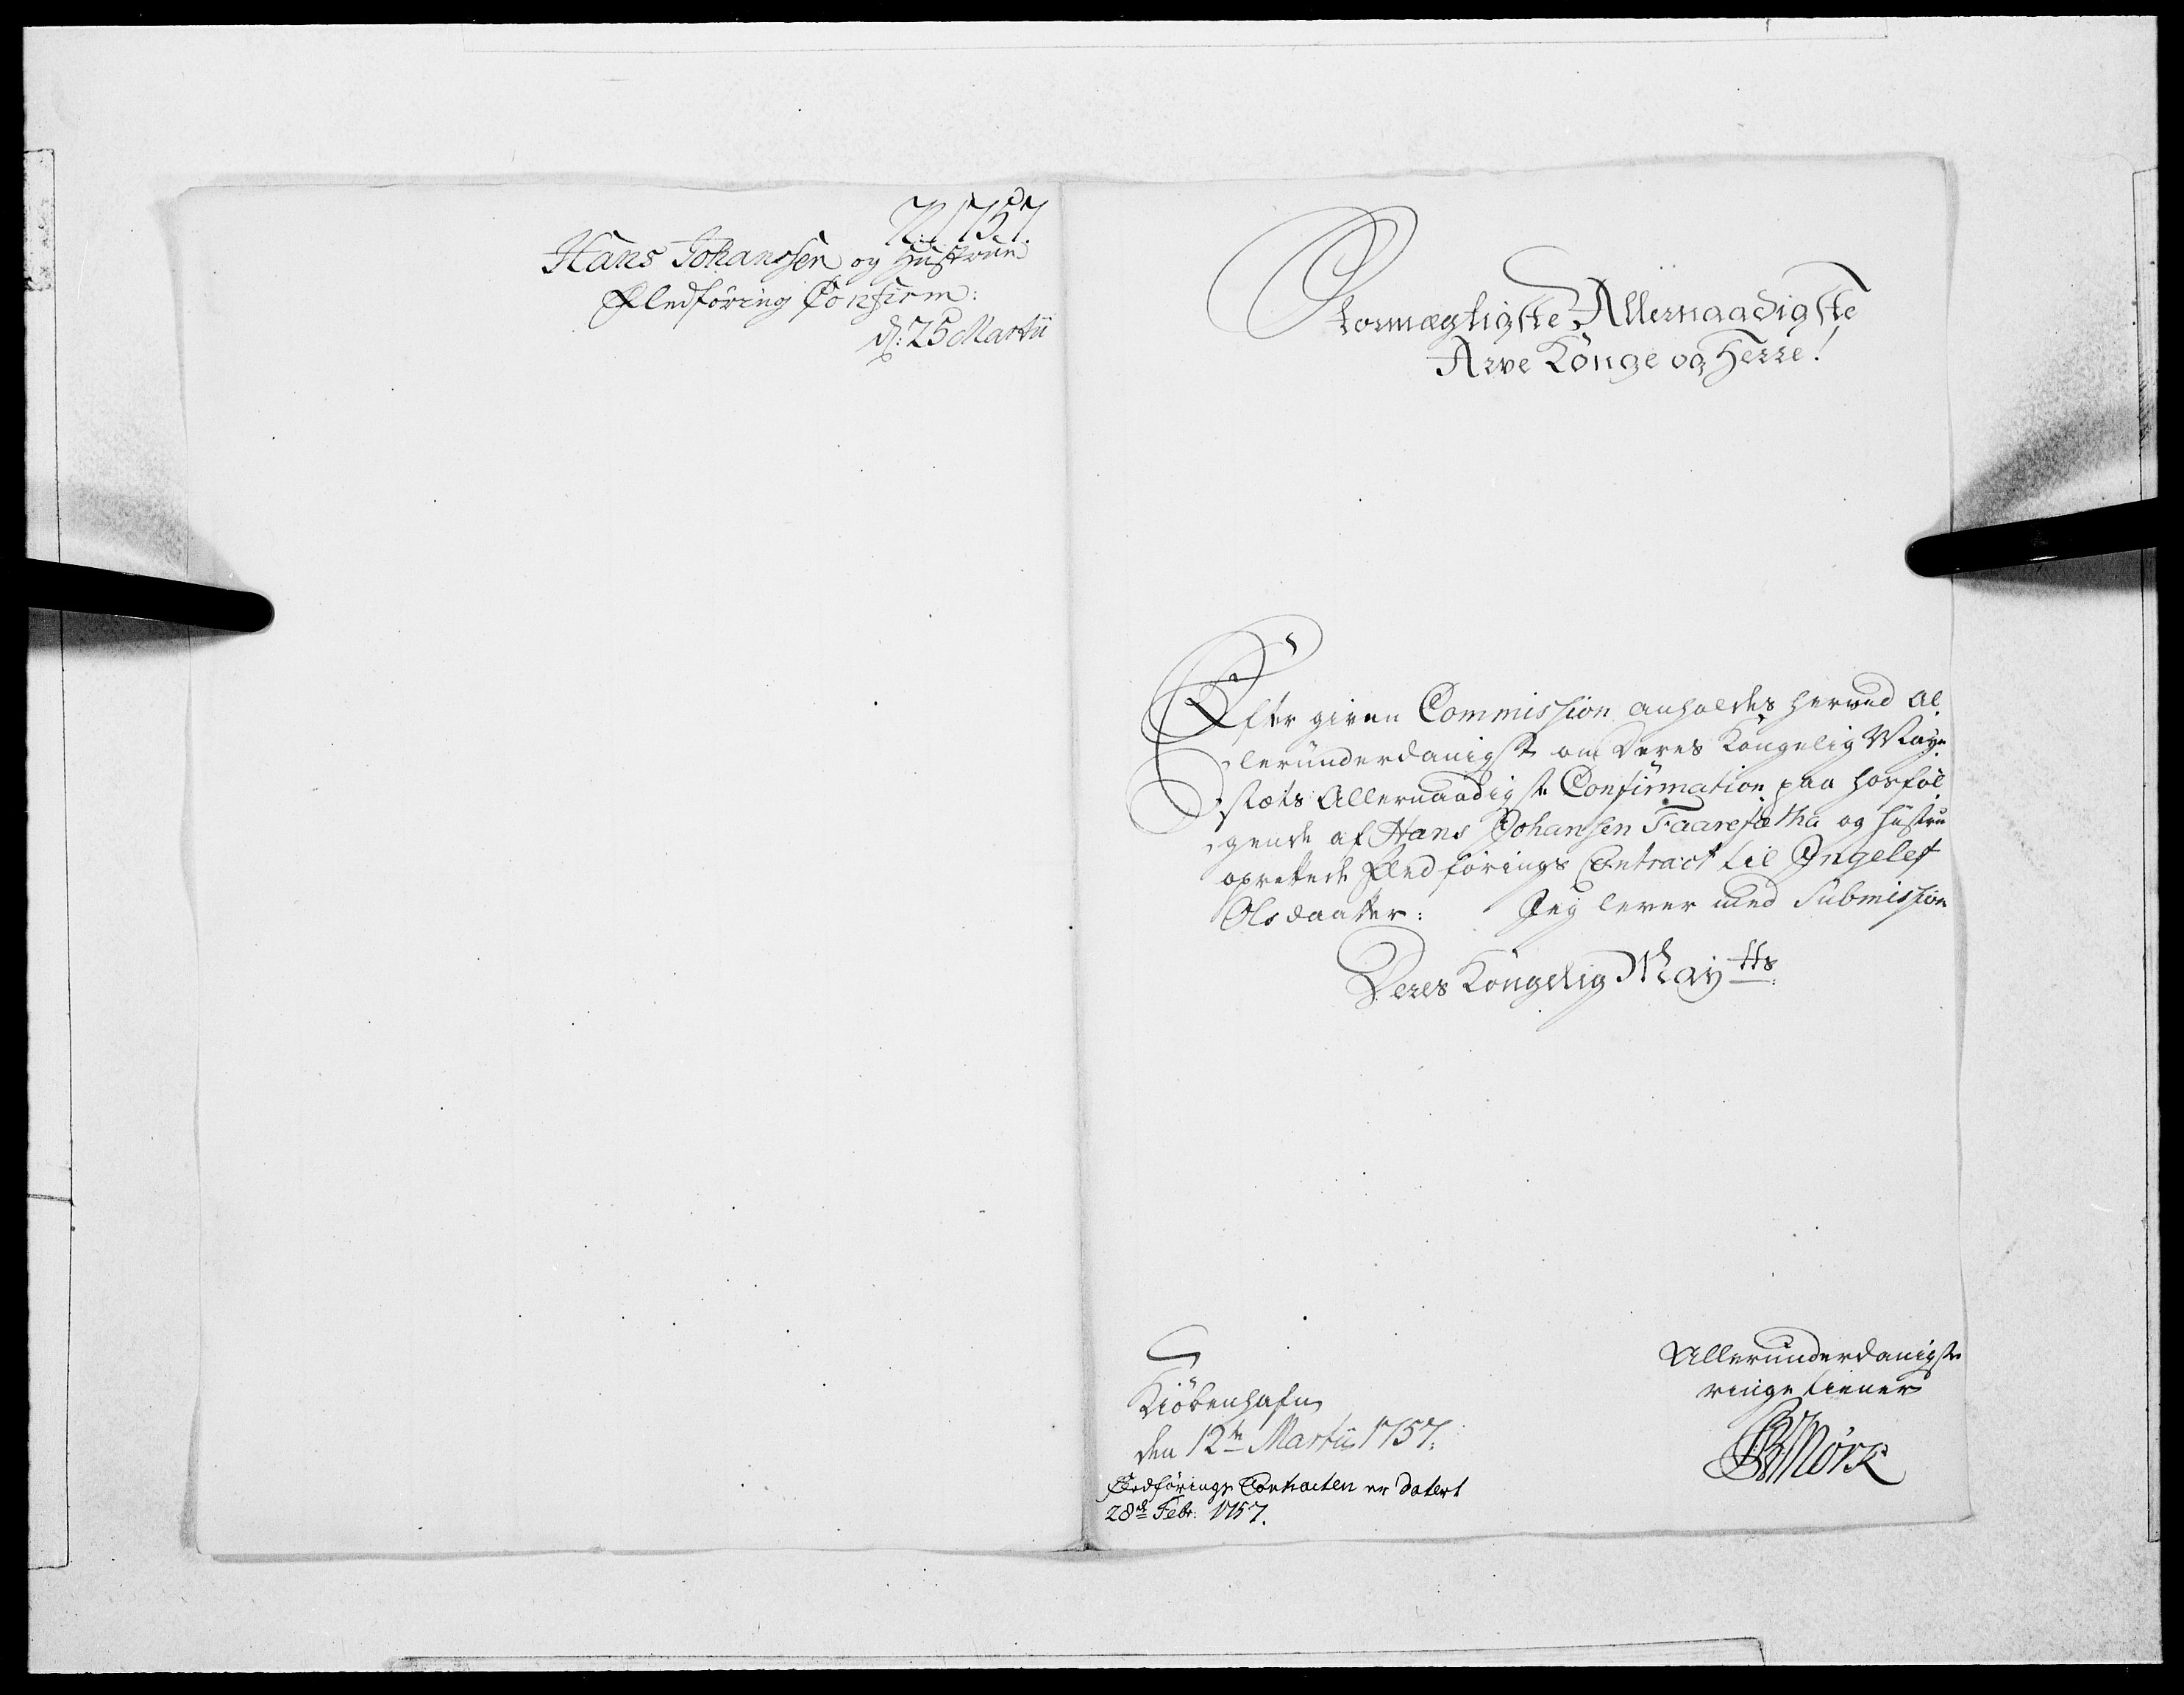 N: 1757.
Hans Johanssen og Hustrue
Fledføring Confirm:
d: 25 Martii
Stormægtigste Allernaadigste
Arve Konge og Herre!
Efter given Commission anholdes herved al
lerunderdanigst om Deres Kongelig Maye
stæts Allernaadigste Confirmation paa hosføl
gende af Hans Johansen Faarefætha og Hustru
oprettede Fledførings Contract til Ingeleff
Olsdaatter: Jeg lever med Submission
Deres Kongelig Mayts:
Allerunderdanigste
ringe tiener
Mørk
Kiöbenhafn
den 12te Martii 1757.
Fledførings Contracten er datert
28de Febr: 1757.